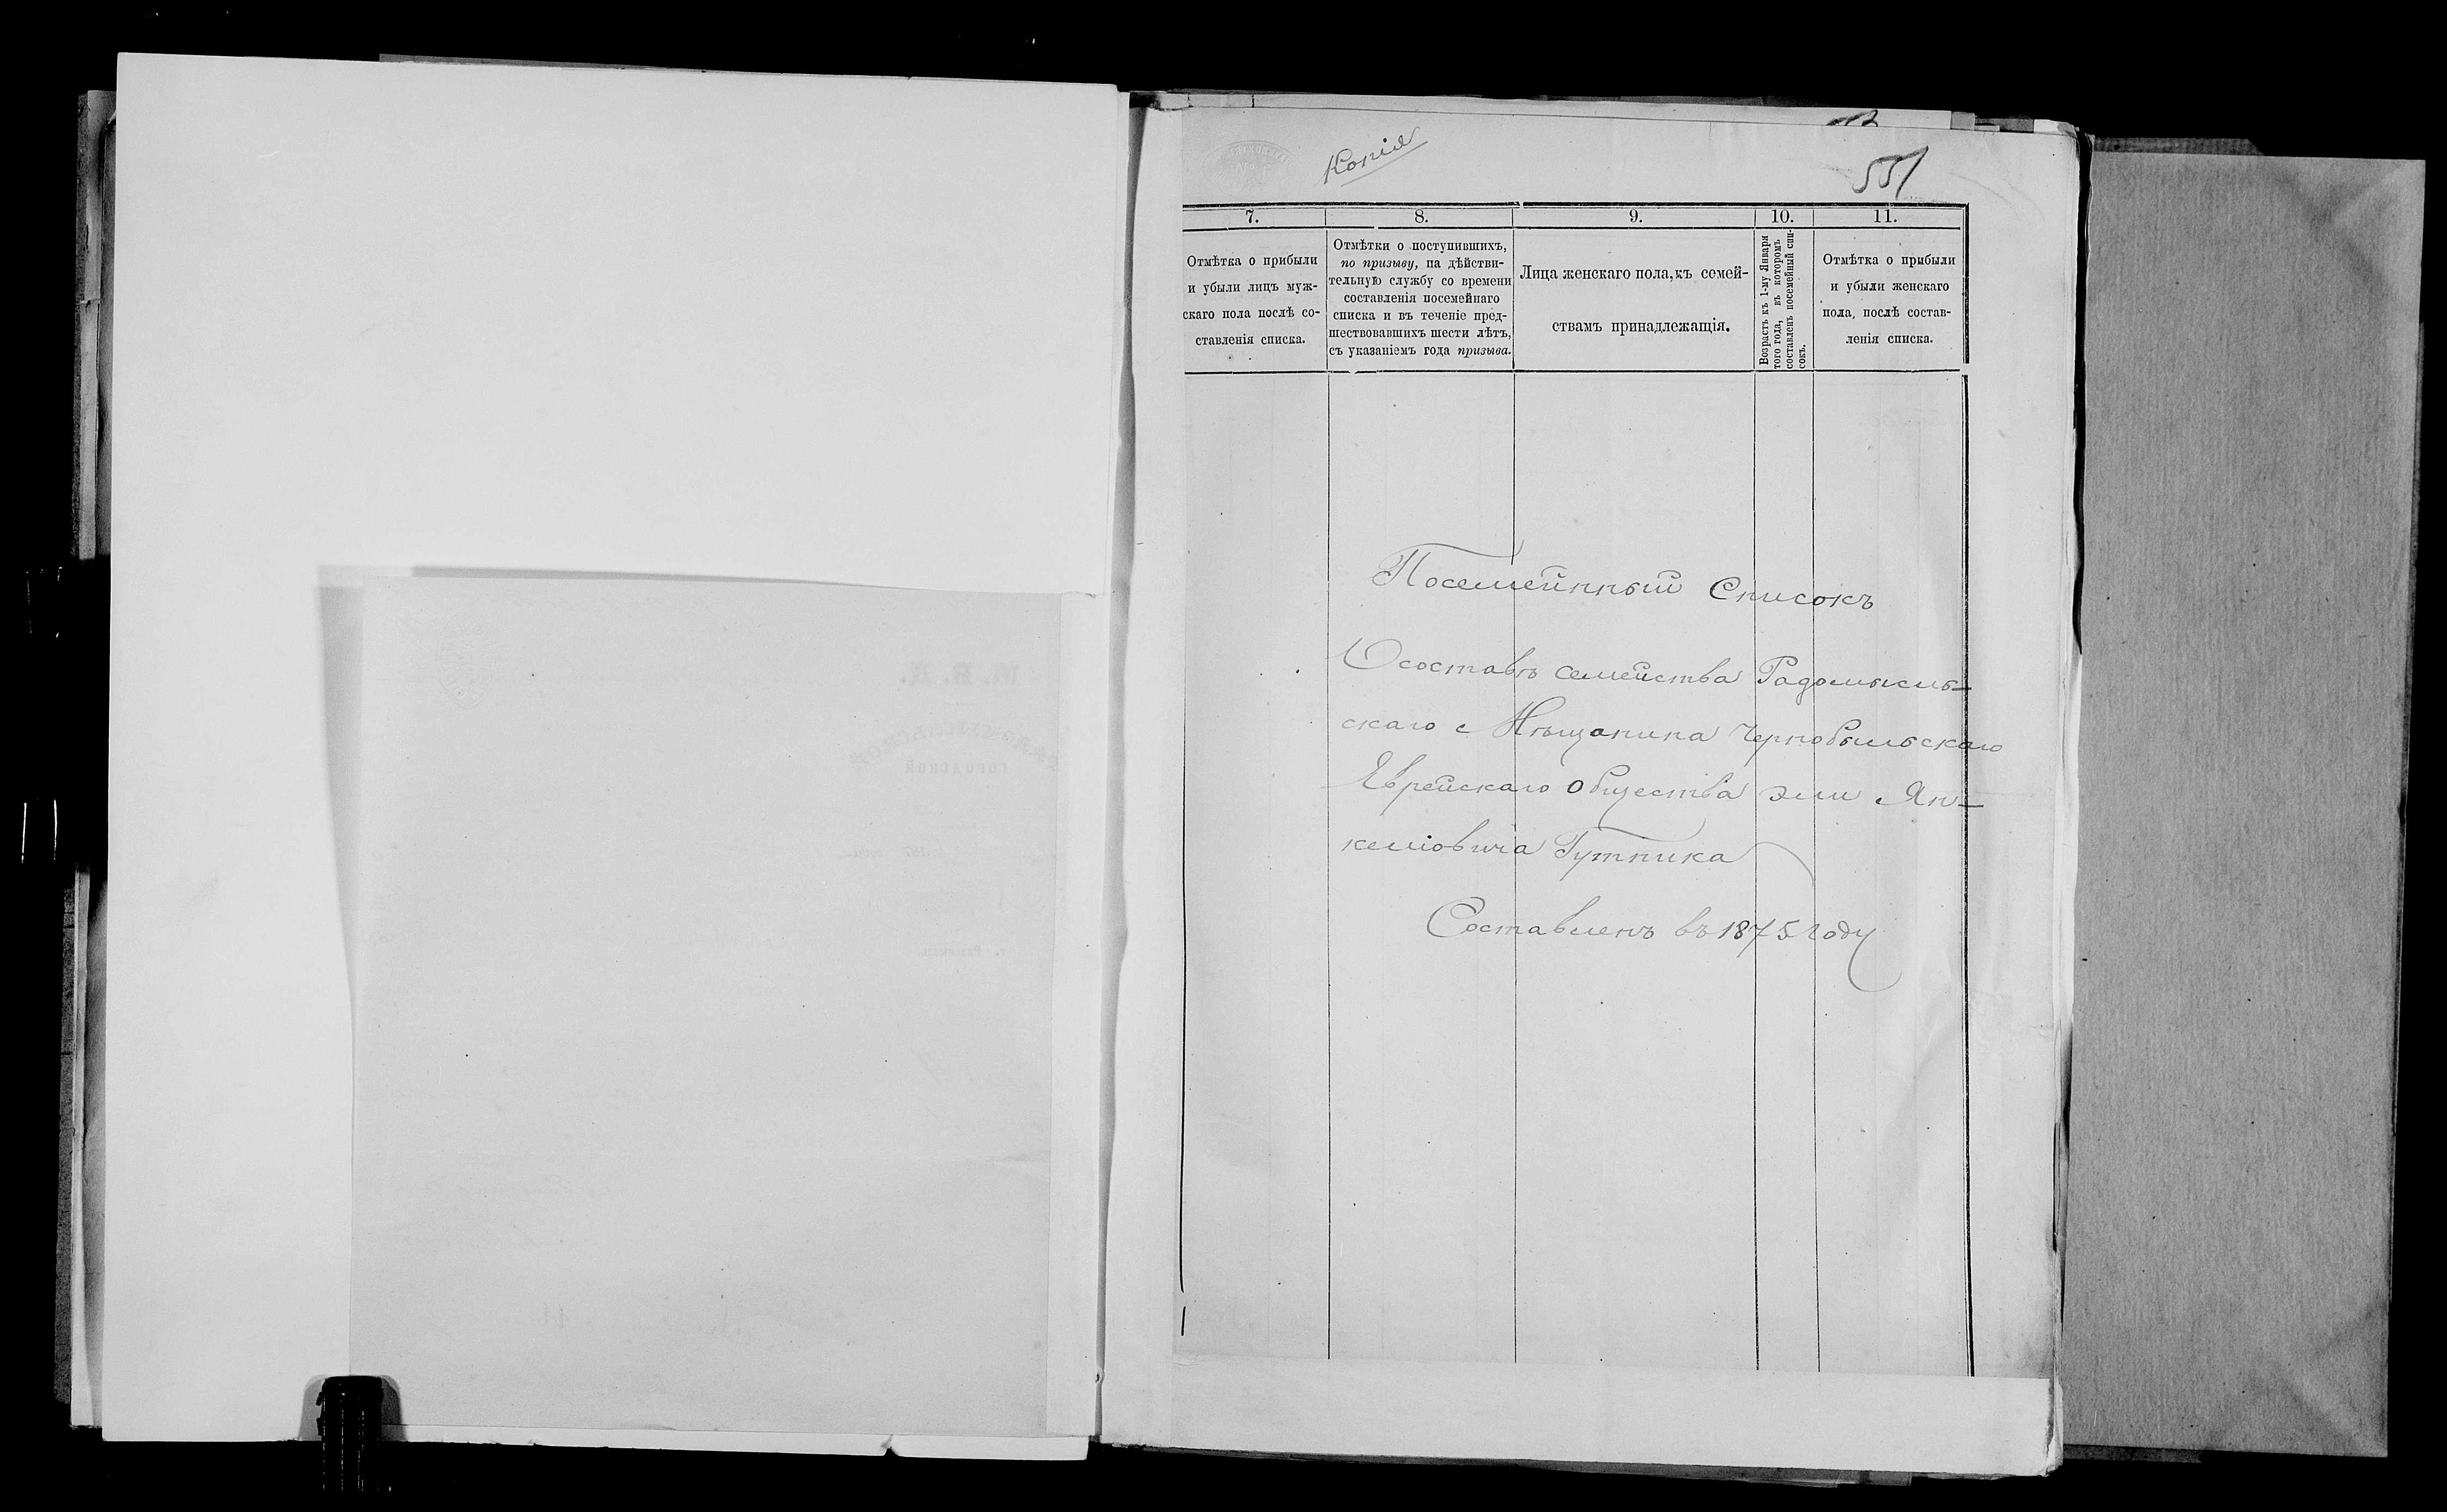 Копія
551
7.
8.
9.
10.
11.
Отмѣтка о прибыли
и убыли лицъ муж-
скаго пола послѣ со-
ставленія списка.
Отмѣтки о поступившихъ,
по призыву, на дѣйстви-
тельную службу со времени
составленія посемейнаго
списка и въ теченіе пред-
шествовавшихъ шести лѣтъ,
съ указаніемъ года призыва.
Лица женскаго пола, къ семей-
ствамъ принадлежащія.
Возрастъ къ 1-му Января
того года, въ которомъ
составленъ посемейный спи-
сокъ.
Отмѣтка о прибыли
и убыли женскаго
пола, послѣ состав-
ленія списка.
Посемейнный Списокъ
О составѣ семейства Радомысль-
скаго Мѣщанина Чернобыльскаго
Еврейскаго Общества Эли Ян-
келіовича Гутника
Составленъ въ 1875 году